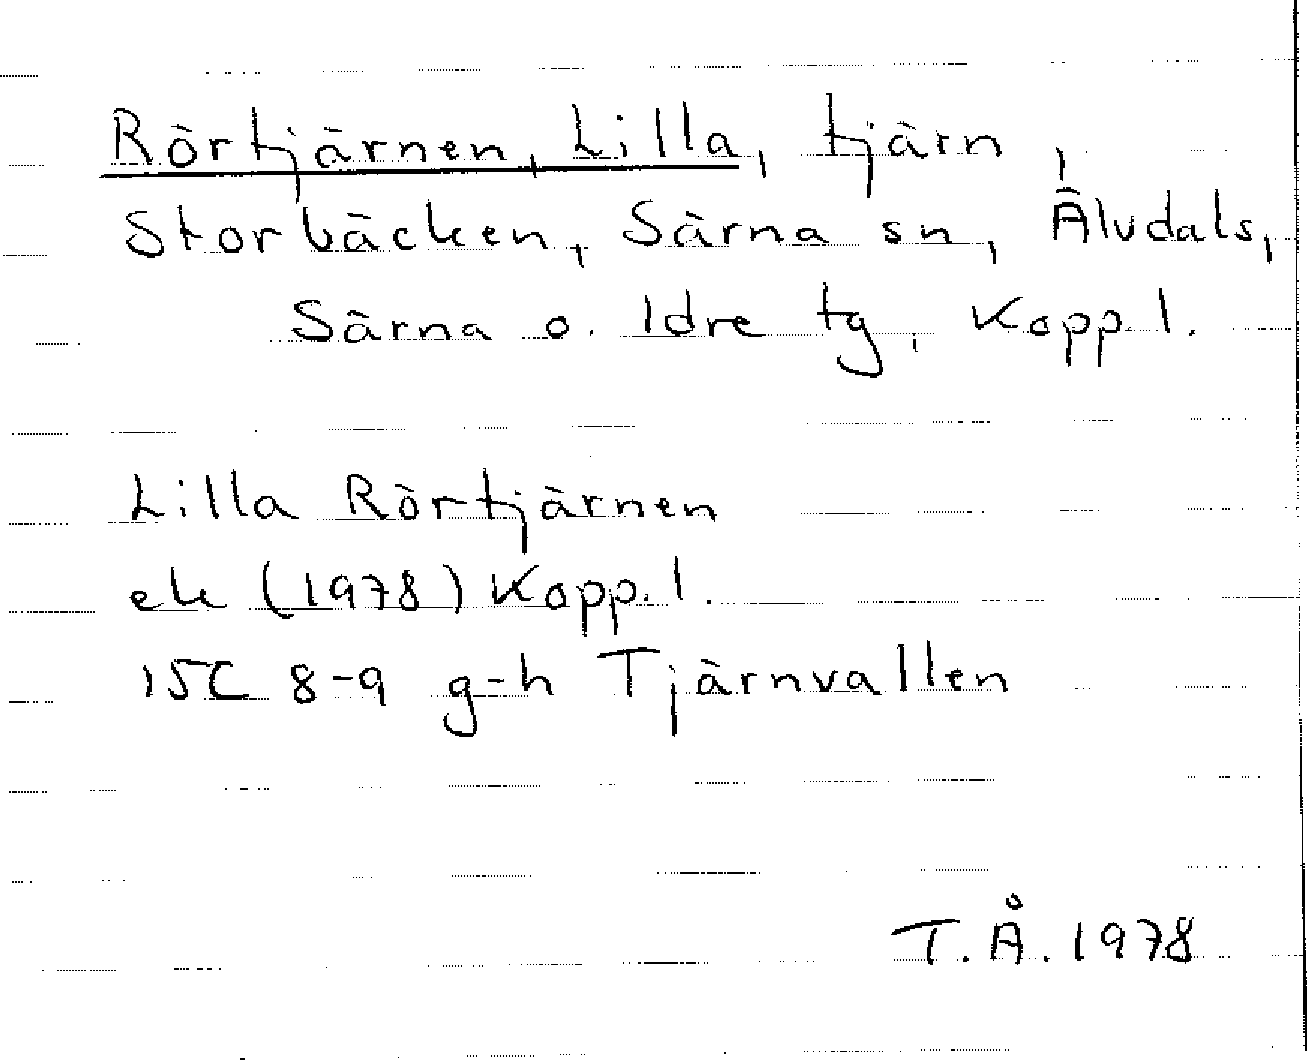 Rörtjärnen, Lilla, tjärn,
Storbäcken, Särna sn, Älvdals,
Särna o. Idre tg, Kopp.l.
Lilla Rörtjärnen
ek (1978) Kopp.l.
15C 8-9 g-h Tjärnvallen
T.Å. 1978